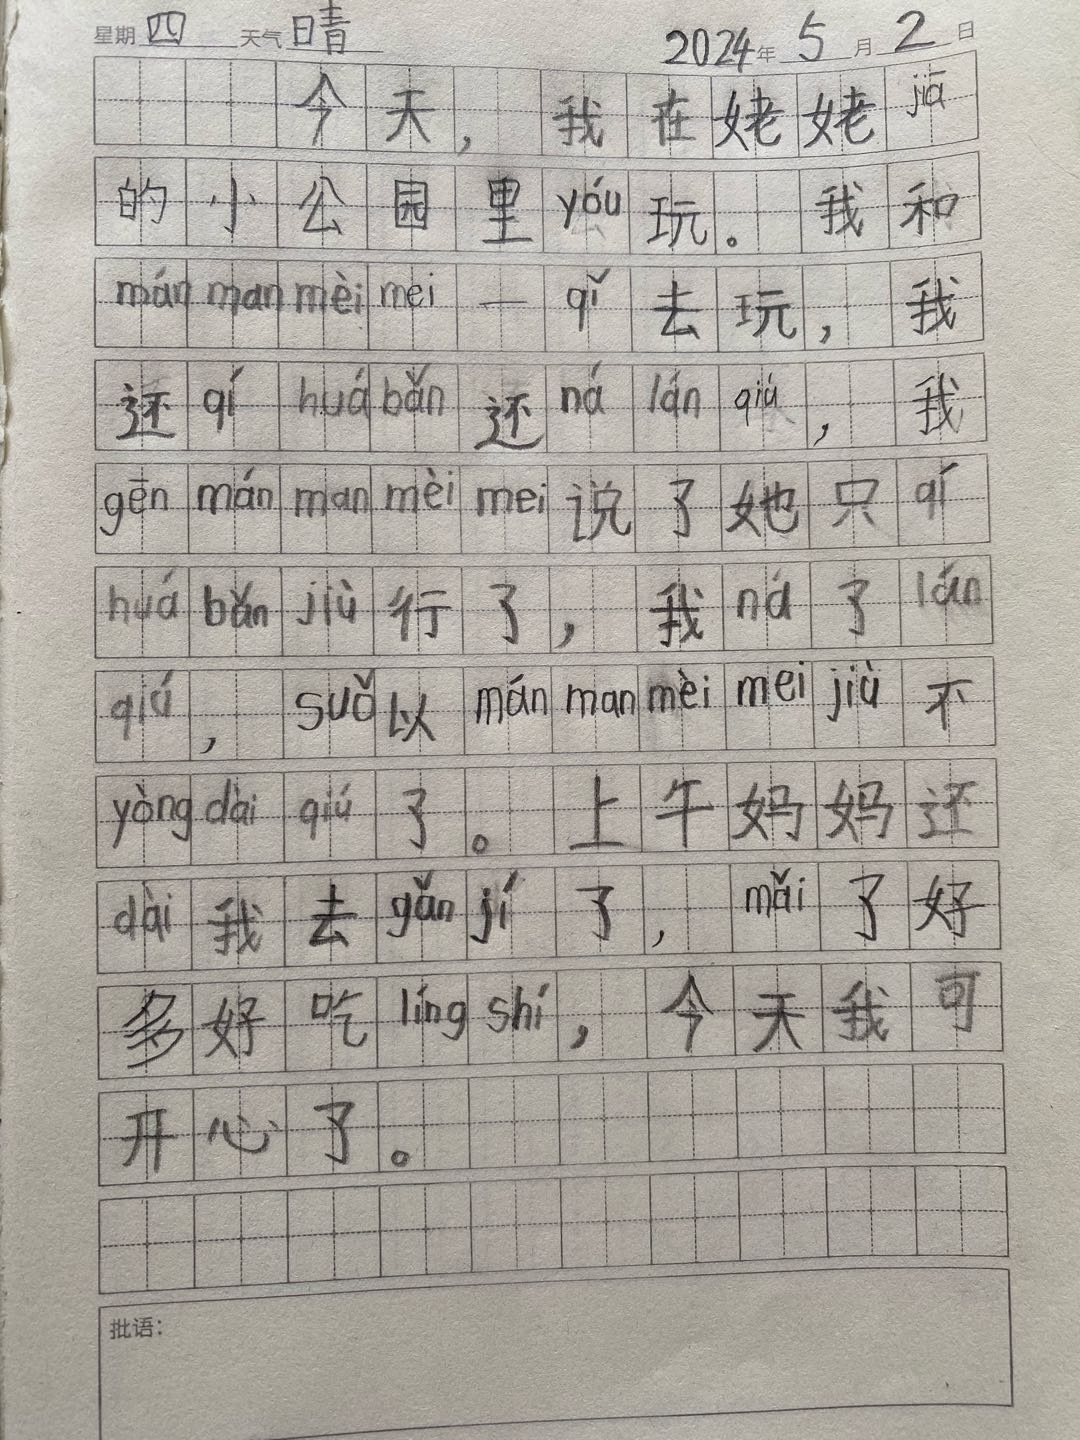 星期 四 天气 晴 2024年 5 月 2 日
今天，我在姥姥jiā
的小公园里yóu玩。我和
mán man mèi mei 一qǐ去玩，我
还qí huá bǎn还ná lán qiú，我
gēn mán man mèi mei说了她只qí
huá bǎn jiù行了，我ná了lán
qiú，suǒ以mán man mèi mei jiù不
yòng dài qiú了。上午妈妈还
dài我去gǎn jí了，mǎi了好
多好吃líng shí，今天我可
开心了。
批语：